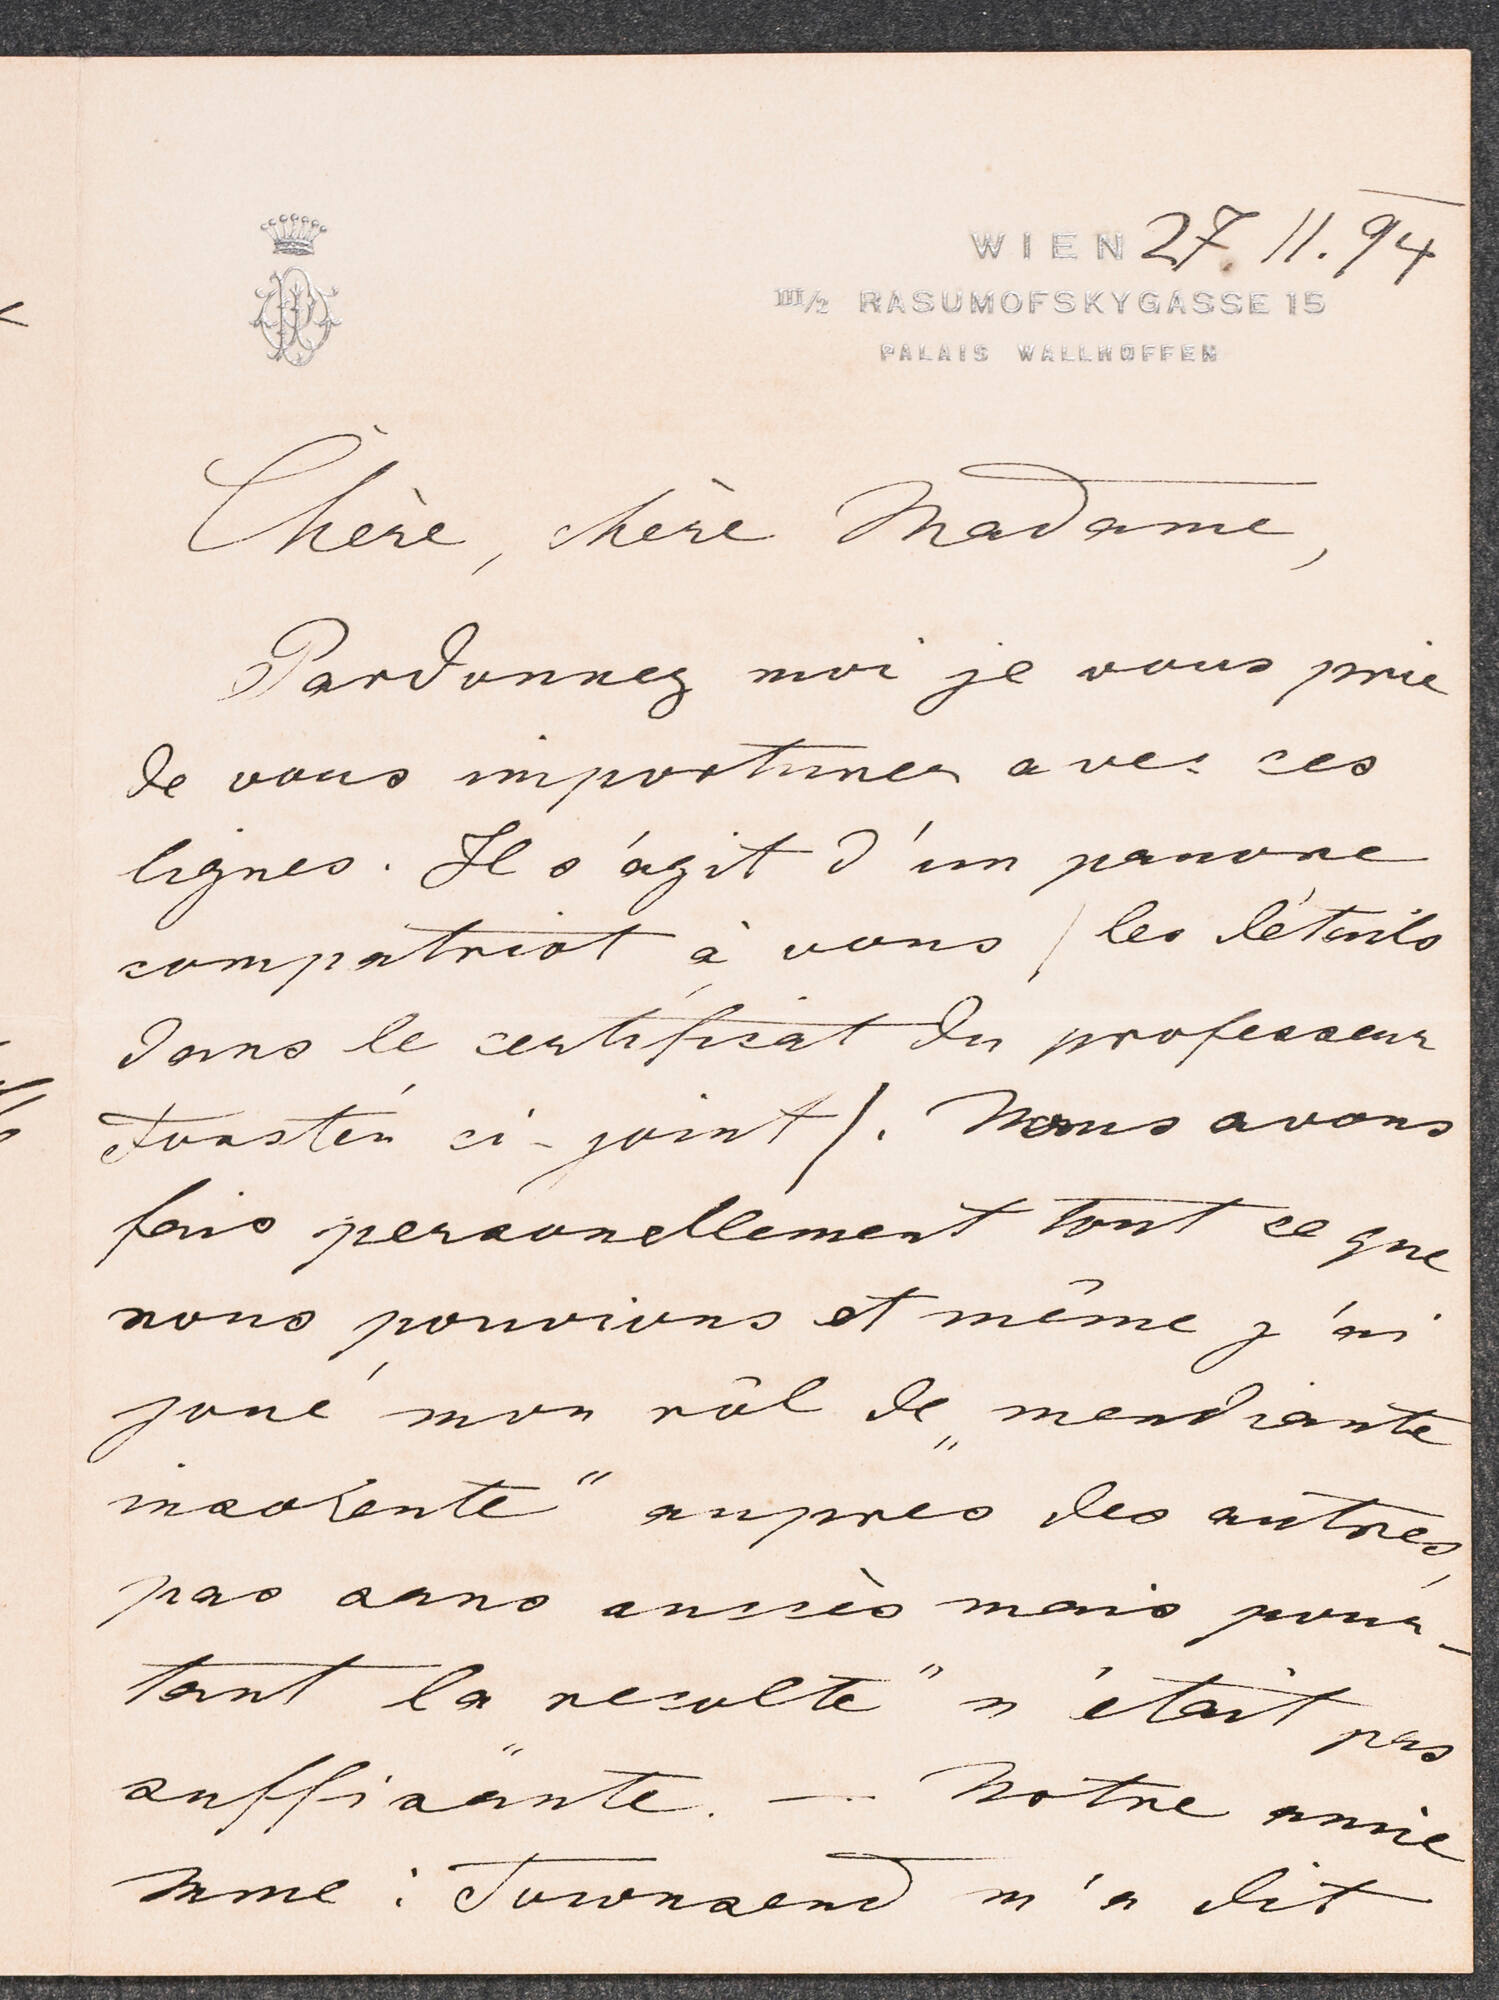 WIEN 27. 11. 94
III/2 RASUMOFSKYGASSE 15
PALAIS WALLHOFFEN
Chère, chère Madame,
Pardonnez moi je vous prie
de vous importuner avec ces
lignes. Il s'agit d'un pauvre
compatriot à vous / les détails
dans le certificat du professeur
ci-joint /. Nous avons
fais personellement tout ce que
nous pouvions et même j'ai
joué mon rôl de „mendiante
insolente“ aupres des autres,
pas sans succès mais pour-
tant la recolte" n'était pas
suffisante. — Notre amie
Mme: Townsend m'a dit